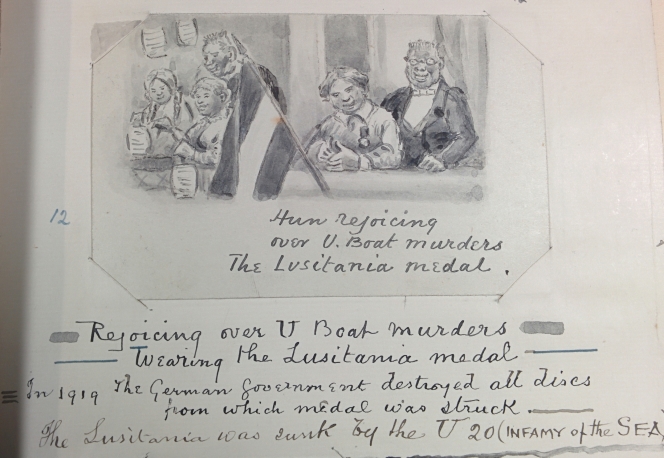 12
Hun rejoicing
over U. Boat murders
The Lusitania medal.
Rejoicing over U Boat murders
Wearing the Lusitania medal
In 1919 The German Government destroyed all discs
from which medal was struck.
The Lusitania was sunk by the U 20 (INFAMY of the SEA)